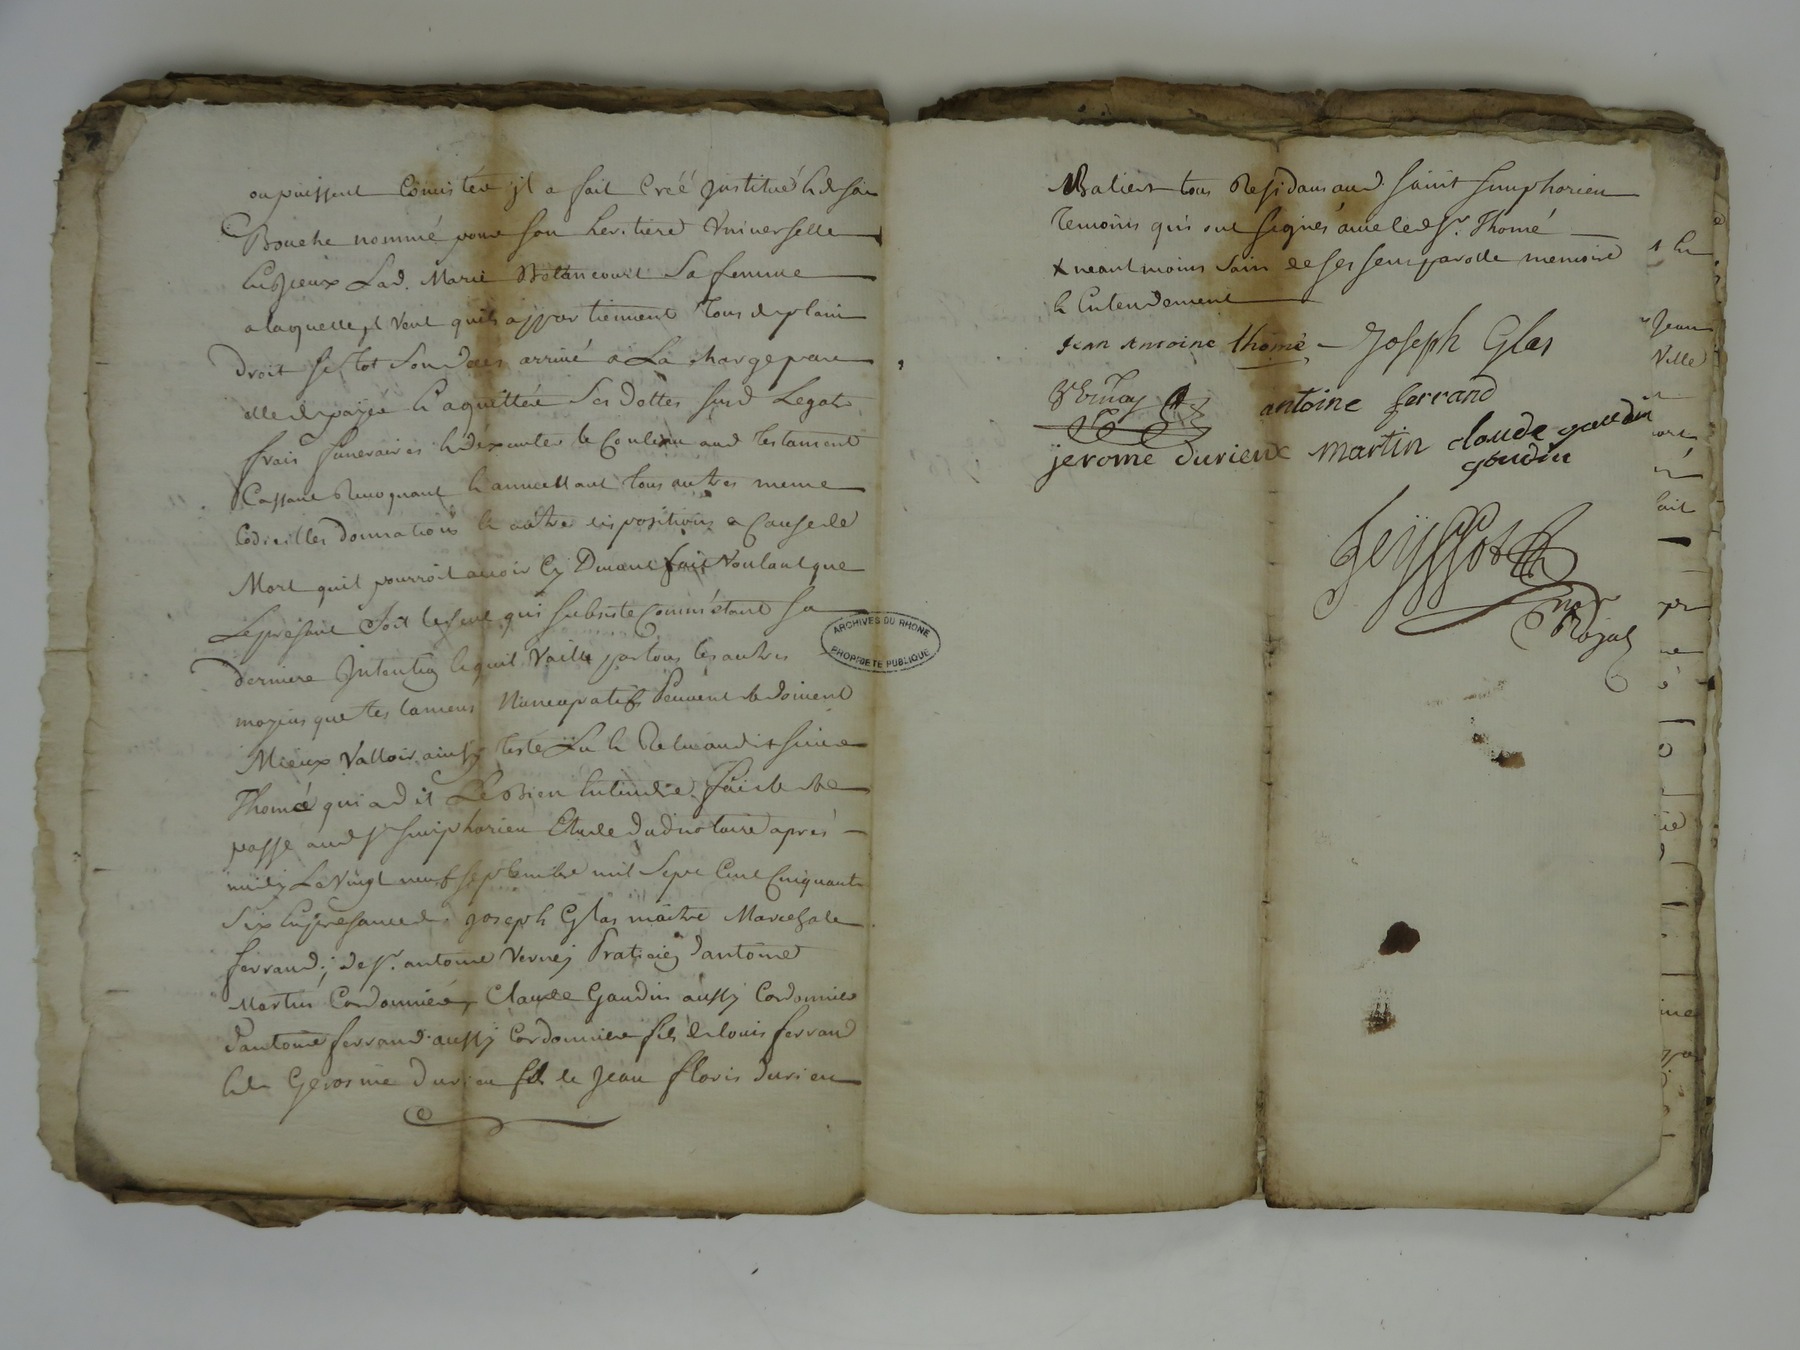 ou puissent Consister jl a fait Créé Justitué & de sa
Bouche nommé pour son heritiere Vniverselle
Lad. Marie Betancourt Sa femme
a laquelle jl veut quils appartiennent Tous de plain
Droit sitot Son deces arrivé a La charge pare
elle de payer & aquitter Ses dettes susd Legats
frais funeraires & dexecuter le Contenu aud Testament
Cassant Revoquant & annullant tous autres meme
Codicilles donnations & autre dispositions a Cause de
Mort quil pourroit avoir Cy Devant fait Voulant que
Le present Soit le seul qui subsiste Comme étant sa
derniere Jntention & quil Vaille par tous les autres
moyens que testamens Nuncupatifs Peuvent & doivent
Mieux Valloir ainsy testé Lu & Relu audit sieur
Thomé qui a dit Le Bien Entendre. fait &
passé aud St simphorien Etude dud notaire après
midy Le Vingt neuf septembre mil Sept Cent Cinquante
Six En presance de Joseph Glas maitre Marechal
ferrand; de Sr. antoine Verney Praticien d'antoine
Martin Cordonnier, Claude Gaudin aussy Cordonnier
d'antoine ferrand aussy Cordonnier fils de louis ferrand
& de Gerosme Durieu fils de Jean floris durieu
tous Residans aud. saint simphorien
Temoins qui ont signés avec led Sr. Thomé
x neantmoins sain de ses sens parolle memoire
& Entendement
Jean Antoine thomé Joseph Glas
antoine ferrand
jerome durieux martin claude gaudin
gaudin
nore
Royal
ARCHIVES DU RHONE
PROPRIETE PUBLIQUE
Jean
Ville